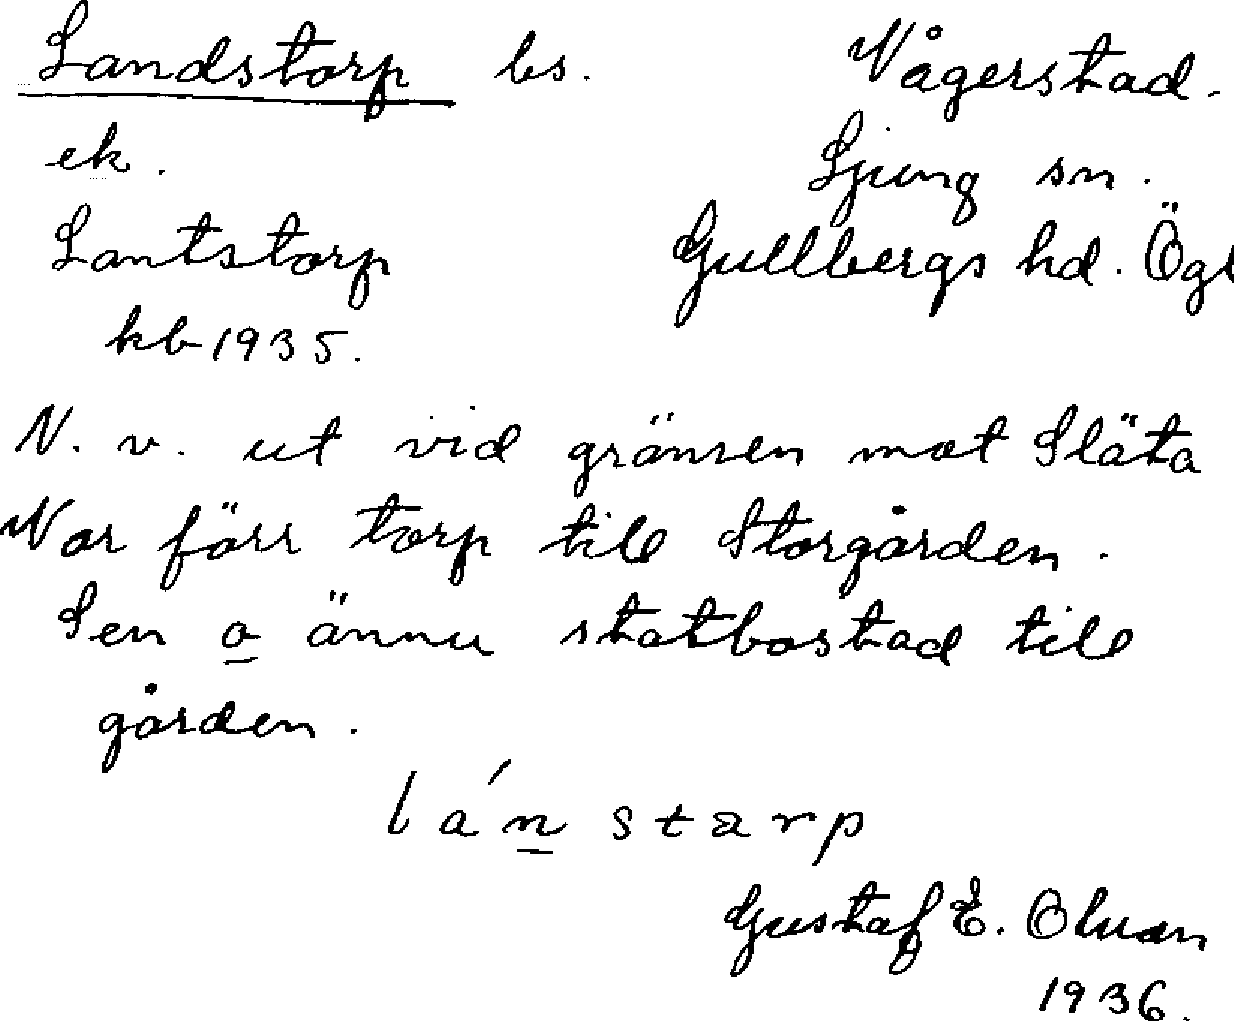 Landstorp bs. Vågerstad.
ek. Ljung sn.
Lantstorp Gullbergs hd. Ögl
kb 1935.
N. v. ut vid gränsen mot Släta
Var förr torp till Storgården.
Sen o ännu statbostad till
gården.
lánstarp
Gustaf E. Olson
1936.